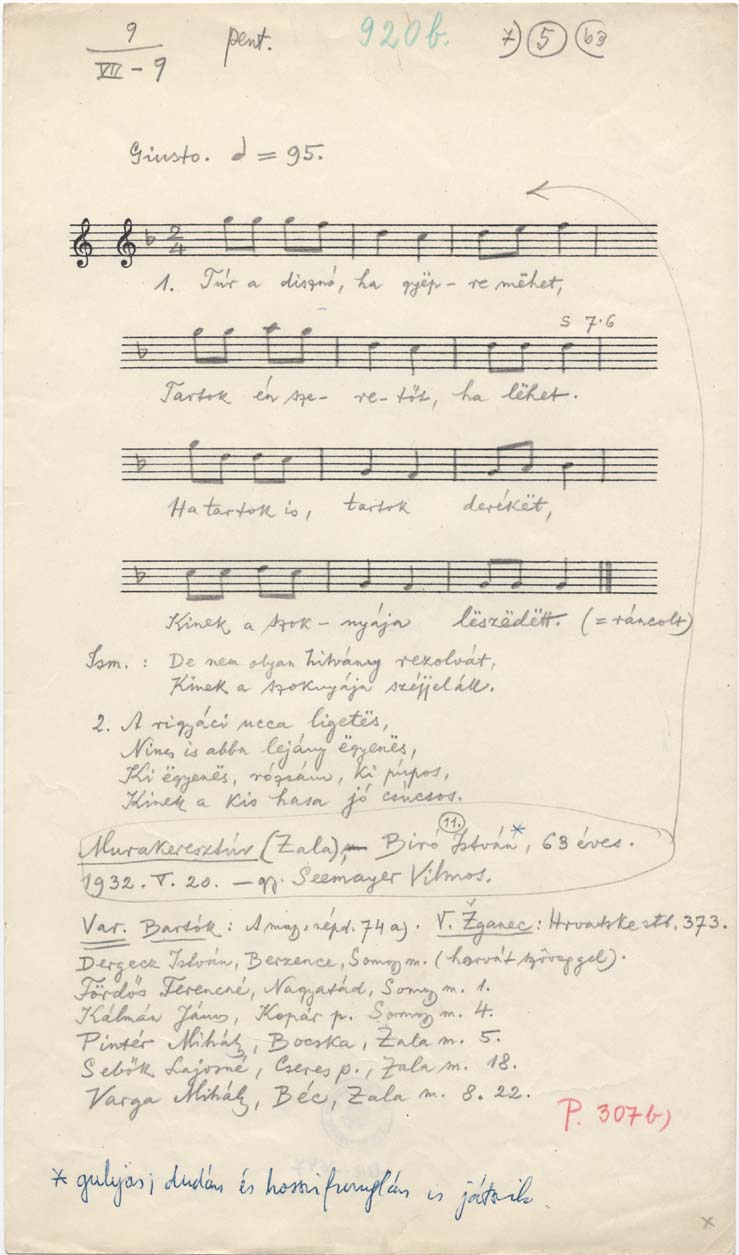 9 pent. 920b. 7) 5 (b3
VII - 9
Giusto. = 95.
2
4
1. Túr a disznó, ha gyëp - re mëhet,
S 7·6
Tartok én sze - re - tőt, ha lëhet.
Ha tartok is, tartok derékët,
Kinek a szok - nyája lëszëdëtt. (= ráncolt)
Ism. : De nem olyan hitvány rezolvát,
Kinek a szoknyája széjjeláll.
2. A rigyáci ucca ligetës,
Nincs is abba lejány ëgyenës,
Ki ëgyenës, rózsám, ki púpos,
Kinek a kis hasa jó csúcsos.
11.
Murakeresztúr (Zala), Biró István*, 63 éves.
1932. V. 20. - gy. Seemayer Vilmos.
Var. Bartók : A mag. népd. 74 a). V. Žganec : Hrvatske stb. 373.
Dergecz István, Berzence, Somogy m. (horvát szöveggel).
Fördős Ferencné, Nagyatád, Somogy m. 1.
Kálmán János, Kopár p. Somogy m. 4.
Pintér Mihály, Bocska, Zala m. 5.
Sebők Lajosné, Cseres p., Zala m. 18.
Varga Mihály, Béc, Zala m. 8. 22.
P. 307b)
* gulyás; dudán és hosszifuruglán is játszik.
x